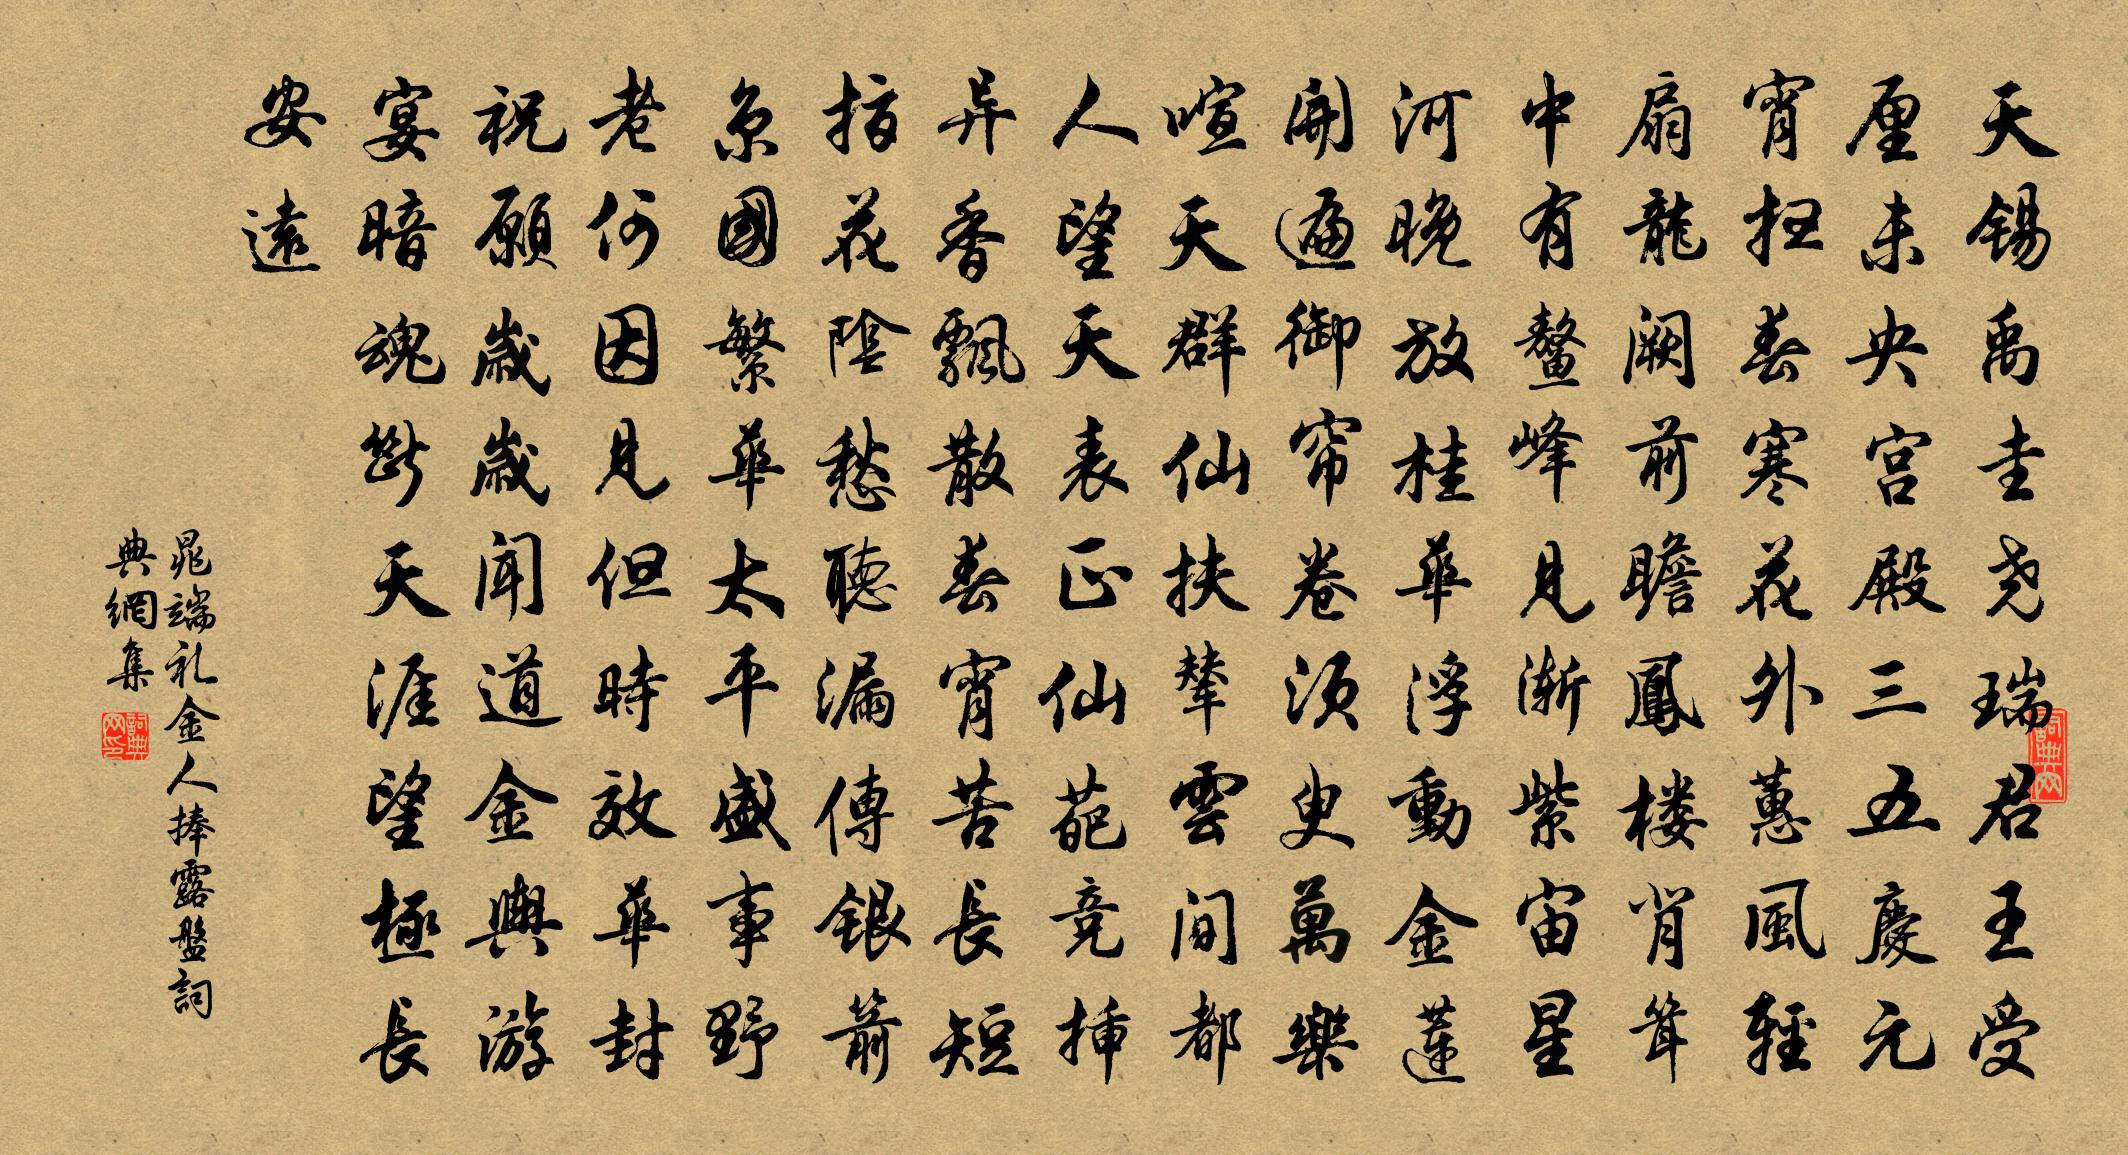 天錫禹圭尧瑞君王受
厘未央宫殿三五慶元
宵扫春寒花外蕙風輕
扇龍阙前瞻鳳楼肖耸
中有鳌峰見漸紫宙星
河晚放桂華浮動金蓮
開遍御帘卷须臾萬樂
喧天群仙扶輦雲間都
人望天表正仙葩竞插
异香飄散春宵苦長短
指花陰愁聽漏傳銀箭
京國繁華太平盛事野
老何因見但時效華封
祝願歲歲聞道金輿游
宴暗魂斷天涯望極長
安遠
晁端礼金人捧露盤詞
典網集
詞典网
詞典网印